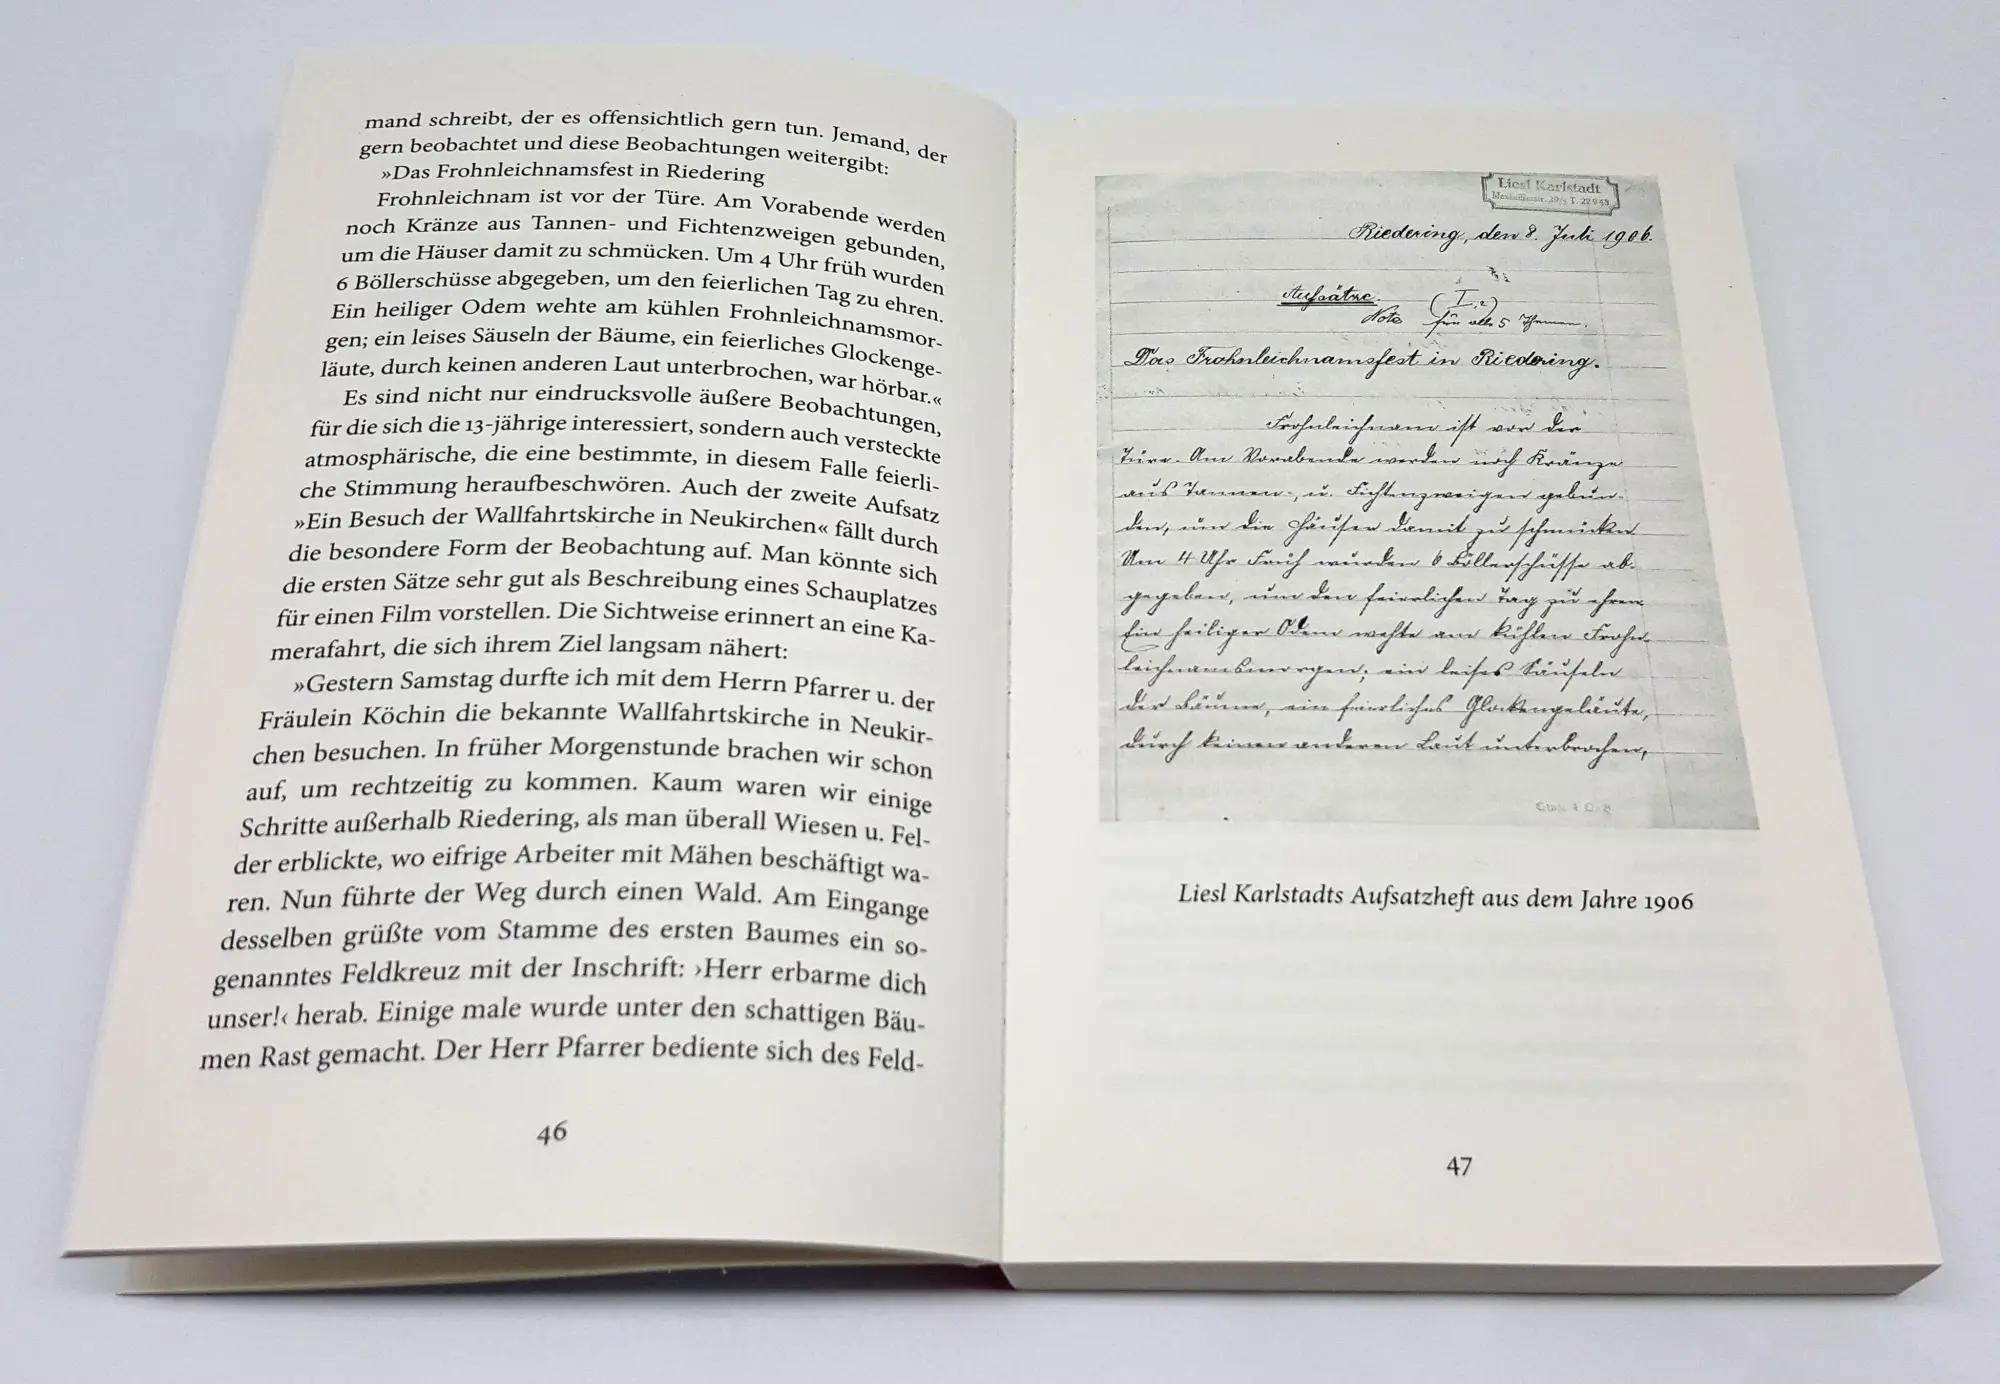 mand schreibt, der es offensichtlich gern tun. Jemand, der
gern beobachtet und diese Beobachtungen weitergibt:
»Das Frohnleichnamsfest in Riedering
Frohnleichnam ist vor der Türe. Am Vorabende werden
noch Kränze aus Tannen- und Fichtenzweigen gebunden,
um die Häuser damit zu schmücken. Um 4 Uhr früh wurden
6 Böllerschüsse abgegeben, um den feierlichen Tag zu ehren.
Ein heiliger Odem wehte am kühlen Frohnleichnamsmor-
gen; ein leises Säuseln der Bäume, ein feierliches Glockenge-
läute, durch keinen anderen Laut unterbrochen, war hörbar.«
Es sind nicht nur eindrucksvolle äußere Beobachtungen,
für die sich die 13-jährige interessiert, sondern auch versteckte
atmosphärische, die eine bestimmte, in diesem Falle feierli-
che Stimmung heraufbeschwören. Auch der zweite Aufsatz
»Ein Besuch der Wallfahrtskirche in Neukirchen« fällt durch
die besondere Form der Beobachtung auf. Man könnte sich
die ersten Sätze sehr gut als Beschreibung eines Schauplatzes
für einen Film vorstellen. Die Sichtweise erinnert an eine Ka-
merafahrt, die sich ihrem Ziel langsam nähert:
»Gestern Samstag durfte ich mit dem Herrn Pfarrer u. der
Fräulein Köchin die bekannte Wallfahrtskirche in Neukir-
chen besuchen. In früher Morgenstunde brachen wir schon
auf, um rechtzeitig zu kommen. Kaum waren wir einige
Schritte außerhalb Riedering, als man überall Wiesen u. Fel-
der erblickte, wo eifrige Arbeiter mit Mähen beschäftigt wa-
ren. Nun führte der Weg durch einen Wald. Am Eingange
desselben grüßte vom Stamme des ersten Baumes ein so-
genanntes Feldkreuz mit der Inschrift: ›Herr erbarme dich
unser!‹ herab. Einige male wurde unter den schattigen Bäu-
men Rast gemacht. Der Herr Pfarrer bediente sich des Feld-
46
Liesl Karlstadt
Maximilianstr. T. 22953
Riedering, den 8. Juli 1906.
Aufsätze.
Note
für alle 5 Themen.
Das Frohnleichnamsfest in Riedering.
Frohnleichnam ist vor der
Türe. Am Vorabende werden noch Kränze
aus Tannen-, u. Fichtenzweigen gebun-
den, um die Häuser damit zu schmücken.
Um 4 Uhr Früh wurden 6 Böllerschüsse ab-
gegeben, um den feierlichen Tag zu ehren.
Ein heiliger Odem wehte am kühlen Frohn-
leichnamsmorgen; ein leises Säuseln
der Bäume, ein feierliches Glockengeläute,
durch keinen anderen Laut unterbrochen,
Liesl Karlstadts Aufsatzheft aus dem Jahre 1906
47